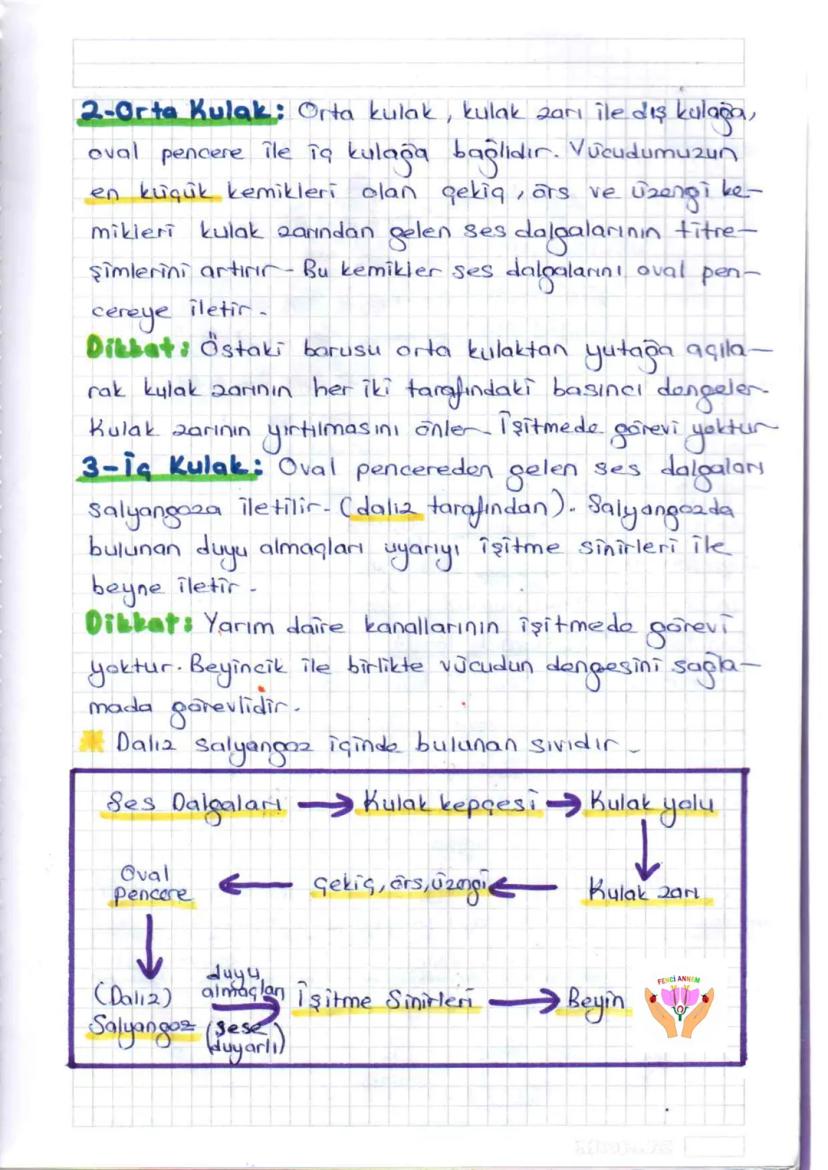 2-Orta Kulak: Orta kulak, kulak zarı ile dış kulağa,
oval pencere ile iç kulağa bağlıdır. Vücudumuzun
en küçük kemikleri olan çekiç, örs ve üzengi ke-
mikleri kulak zarından gelen ses dalgalarının titre-
şimlerini artırır- Bu kemikler ses dalgalarını oval pen-
cereye iletir-
Dikkat: Östaki borusu orta kulaktan yutağa açıla-
rak kulak zarının her iki tarafındaki basıncı dengeler-
Kulak zarının yırtılmasını önler- İşitmede görevi yoktur
3-İç Kulak: Oval pencereden gelen ses dalgaları
salyangoza iletilir- (dalız tarafından). Salyangozda
bulunan duyu almaçları uyarıyı işitme sinirleri ile
beyne iletir-
Dikkat: Yarım daire kanallarının işitmede görevi
yoktur. Beyincik ile birlikte vücudun dengesini sağla-
mada görevlidir.
* Dalız salyangoz içinde bulunan sıvıdır-
Ses Dalgaları → Kulak kepçesi → Kulak yolu
Oval Pencere ← çekiç, örs, üzengi ← Kulak zarı
(Dalız) Salyangoz duyu almaçları (sese duyarlı) → İşitme Sinirleri → Beyin
FENCİ ANNEM